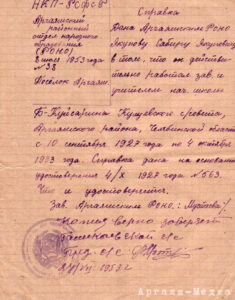 НКП-РСФСР
Аргаяшский
районный
отдел народного
образования
(РОНО)
8 июля 1953 года
№ 38
Поселок Аргаяш
Справка
Дана Аргаяшским РОНО
Якупову Сабиру Якуповичу
в том, что он действи-
тельно работал зав. и
учителем нач. школы
Б-Куйсарина Кулуевского с/совета,
Аргаяшского района, Челябинской области
с 10 сентября 1927 года по 4 октября
1933 года. Справка дана на основании
удостоверения 4/X 1928 года № 563.
Что и удостоверяется.
Зав. Аргаяшским РОНО:
Копия верна заверяет
с/с
пред. с/с
1958 г.
Аргаяш-Медиа